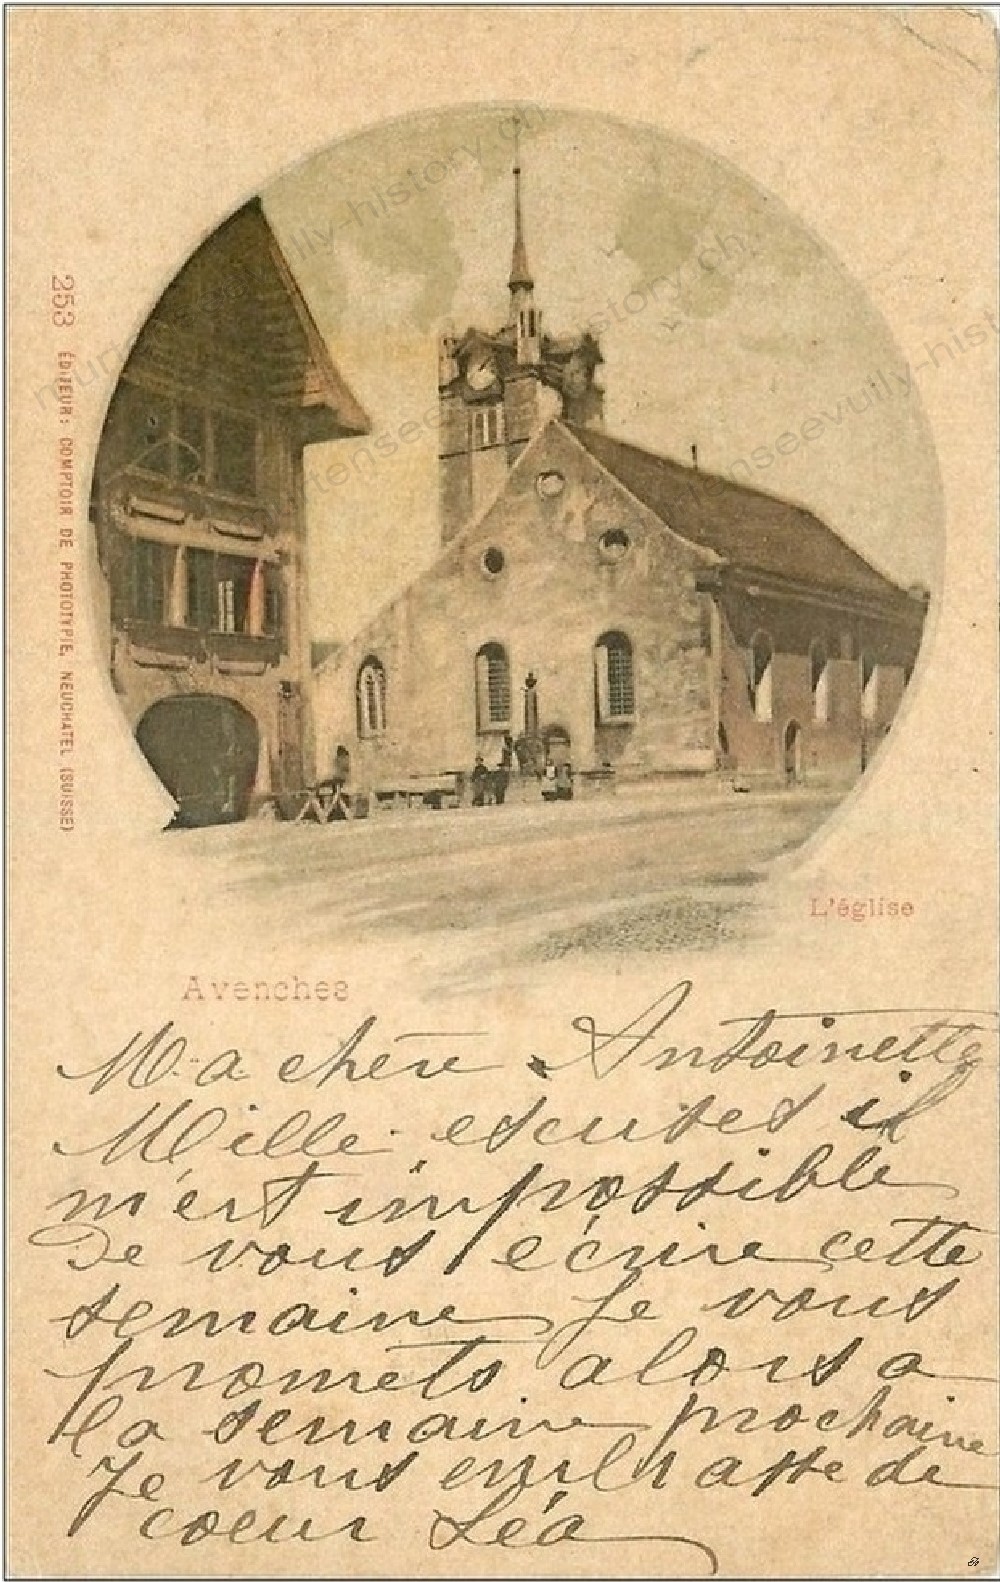 253 ÉDITEUR: COMPTOIR DE PHOTOTYPIE, NEUCHATEL (SUISSE)
L'église
Avenches
Ma chère Antoinette
Mille escuses il
m'est impossible
de vous écrire cette
semaine je vous
promets alors a
la semaine prochaine
Je vous embrasse de
coeur Léa